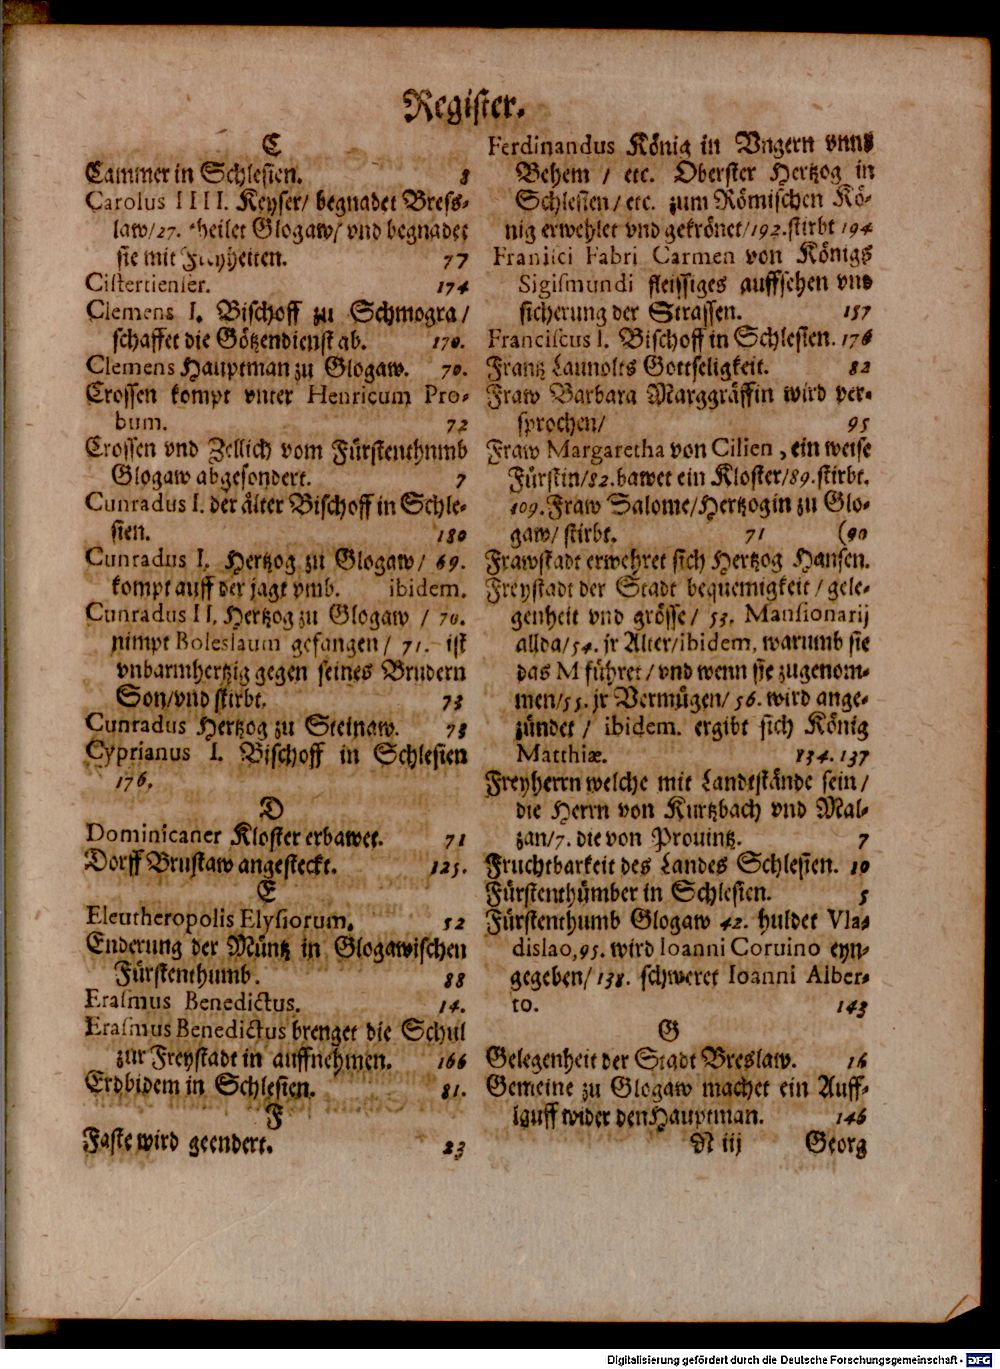 Register.
C
Cammer in Schlesien. 8
Carolus IIII. Keyser/ begnadet Bress-
law/27. theilet Glogaw/ vnd begnadet
sie mit Freyheiten. 77
Cistertienser. 174
Clemens I. Bischoff zu Schmogra/
schaffet die Götzendienst ab. 170.
Clemens Hauptman zu Glogaw. 70.
Crossen kompt vnter Henricum Pro-
bum. 72
Crossen vnd Zellich vom Fürstenthumb
Glogaw abgesondert. 7
Cunradus I. der älter Bischoff in Schle-
sien. 180
Cunradus I. Hertzog zu Glogaw/ 69.
kompt auff der jagt vmb. ibidem.
Cunradus II. Hertzog zu Glogaw / 70.
nimpt Boleslaum gefangen/ 71. ist
vnbarmhertzig gegen seines Brudern
Son/vnd stirbt. 73
Cunradus Hertzog zu Steinaw. 73
Cyprianus I. Bischoff in Schlesien
176.
D
Dominicaner Kloster erbawet. 71
Dorff Brustaw angesteckt. 125.
E
Eleutheropolis Elysiorum. 52
Enderung der Müntz in Glogawischen
Fürstenthumb. 88
Erasmus Benedictus. 14.
Erasmus Benedictus brenget die Schul
zur Freystadt in auffnehmen. 166
Erdbidem in Schlesien. 81.
F
Faste wird geendert. 23
Ferdinandus König in Vngern vnnd
Behem / etc. Oberster Hertzog in
Schlesien/ etc. zum Römischen Kö-
nig erwehlet vnd gekrönet/192.stirbt 194
Franisci Fabri Carmen von Königs
Sigismundi fleissiges auffsehen vnd
sicherung der Strassen. 157
Franciscus I. Bischoff in Schlesien. 176
Frantz Launolts Gottseligkeit. 82
Fraw Barbara Marggräffin wird ver-
sprochen/ 95
Fraw Margaretha von Cilien , ein weise
Fürstin/82.bawet ein Kloster/89.stirbt.
109. Fraw Salome/Hertzogin zu Glo-
gaw/ stirbt. 71 (90
Frawstadt erwehret sich Hertzog Hansen.
Freystadt der Stadt bequemigkeit/ gele-
genheit vnd grösse/ 53. Mansionarij
allda/54. jr Alter/ibidem, warumb sie
das M führet/ vnd wenn sie zugenom-
men/55. jr Vermügen/ 56. wird ange-
zündet / ibidem. ergibt sich König
Matthiæ. 134.137
Freyherrn welche mit Landtstände sein/
die Herrn von Kurtzbach vnd Mal-
zan/7. die von Prouintz. 7
Fruchtbarkeit des Landes Schlesien. 10
Fürstenthümber in Schlesien. 5
Fürstenthumb Glogaw 42. huldet Vla-
dislao,95. wird Ioanni Coruino eyn-
gegeben/ 138. schweret Ioanni Alber-
to. 143
G
Gelegenheit der Stadt Breslaw. 16
Gemeine zu Glogaw machet ein Auff-
lauff wider den Hauptman. 146
N iij Georg
Digitalisierung gefördert durch die Deutsche Forschungsgemeinschaft - DFG